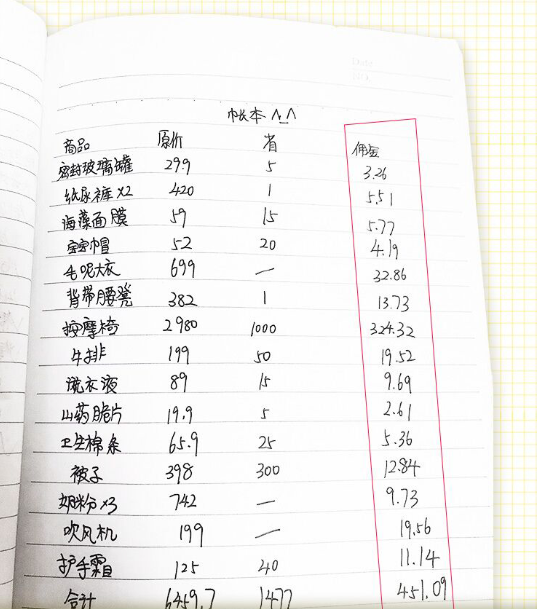 帐本 ^_^
商品 原价 省 佣金
密封玻璃罐 29.9 5 3.26
纸尿裤x2 420 1 5.51
海藻面膜 59 15 5.77
宝宝帽 52 20 4.19
毛呢大衣 699 — 32.86
背带腰凳 382 1 13.73
按摩椅 2980 1000 324.32
牛排 199 50 19.52
洗衣液 89 15 9.69
山药脆片 19.9 5 2.61
卫生棉条 65.9 25 5.36
被子 398 300 12.84
奶粉x3 742 — 9.73
吹风机 199 — 19.56
护手霜 125 40 11.14
合计 6459.7 1477 451.09